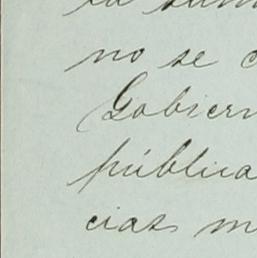 no se
Gobiern
pública
cias m